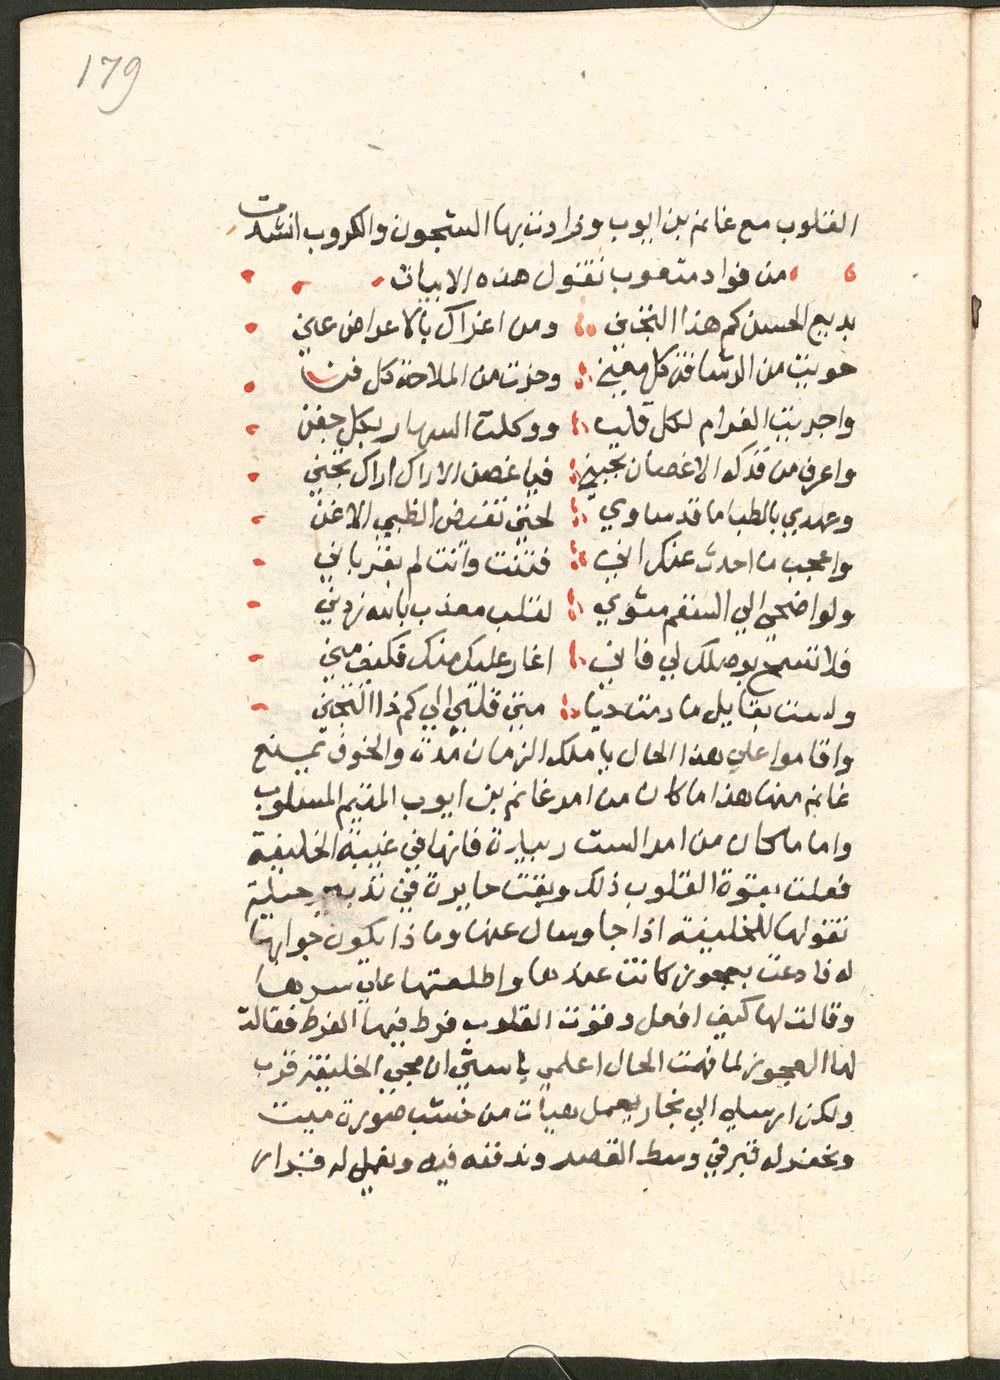 179
القلوب مع غانم بن ايوب وزادت بها الشجون والكروب انشدت
من فواد متعوب تقول هذه الابيات
بديع الحسن كم هذا التجني ومن اغراك بالاعراض عني
حويت من الرشاقة كل معني وحزت من الملاحة كل فن
واجريت الغرام لكل قلب ووكلت السهار بكل جفن
واعرف من قدك الاغصان تجني فيا غصن الاراك اراك تجني
وعهدي بالظبا ما قد ساوي لجني تفض الظبي الاغن
واعجب ما احدث عنك اني فتنت وانت لم تقتر باني
ولو اضحي الي السقم مثوي لقلب معذب بالله زدني
فلا تسمح بوصلك لي فاني اغار عليك منك فكيف مني
ولست بقايل ما دمت حيا متي قلتي الي كم ذا التجني
واقاموا علي هذا الحال يا ملك الزمان مدة والخوف يمنع
غانم منها هذا ما كان من امر غانم بن ايوب المتيم المسلوب
واما ما كان من امر الست زبيدة فانها في غيبة الخليفة
فعلت بقوة القلوب ذلك وبقت حايرة في تدبير حيلة
تقولها للخليفة اذا جا وسال عنها وماذا يكون جوابها
له فادعت بعجوز كانت عندها واطلعتها علي سرها
وقالت لها كيف افعل وقوت القلوب فرط فيها الفرط فقالت
لها العجوز لما فهمت الحال اعلمي يا ستي ان مجي الخليفة قرب
ولكن ارسلي الي نجار يعمل هيات من خشب صورة ميت
ونحفر له قبر في وسط القصر وندفنه فيه ونعمل له قبر ان